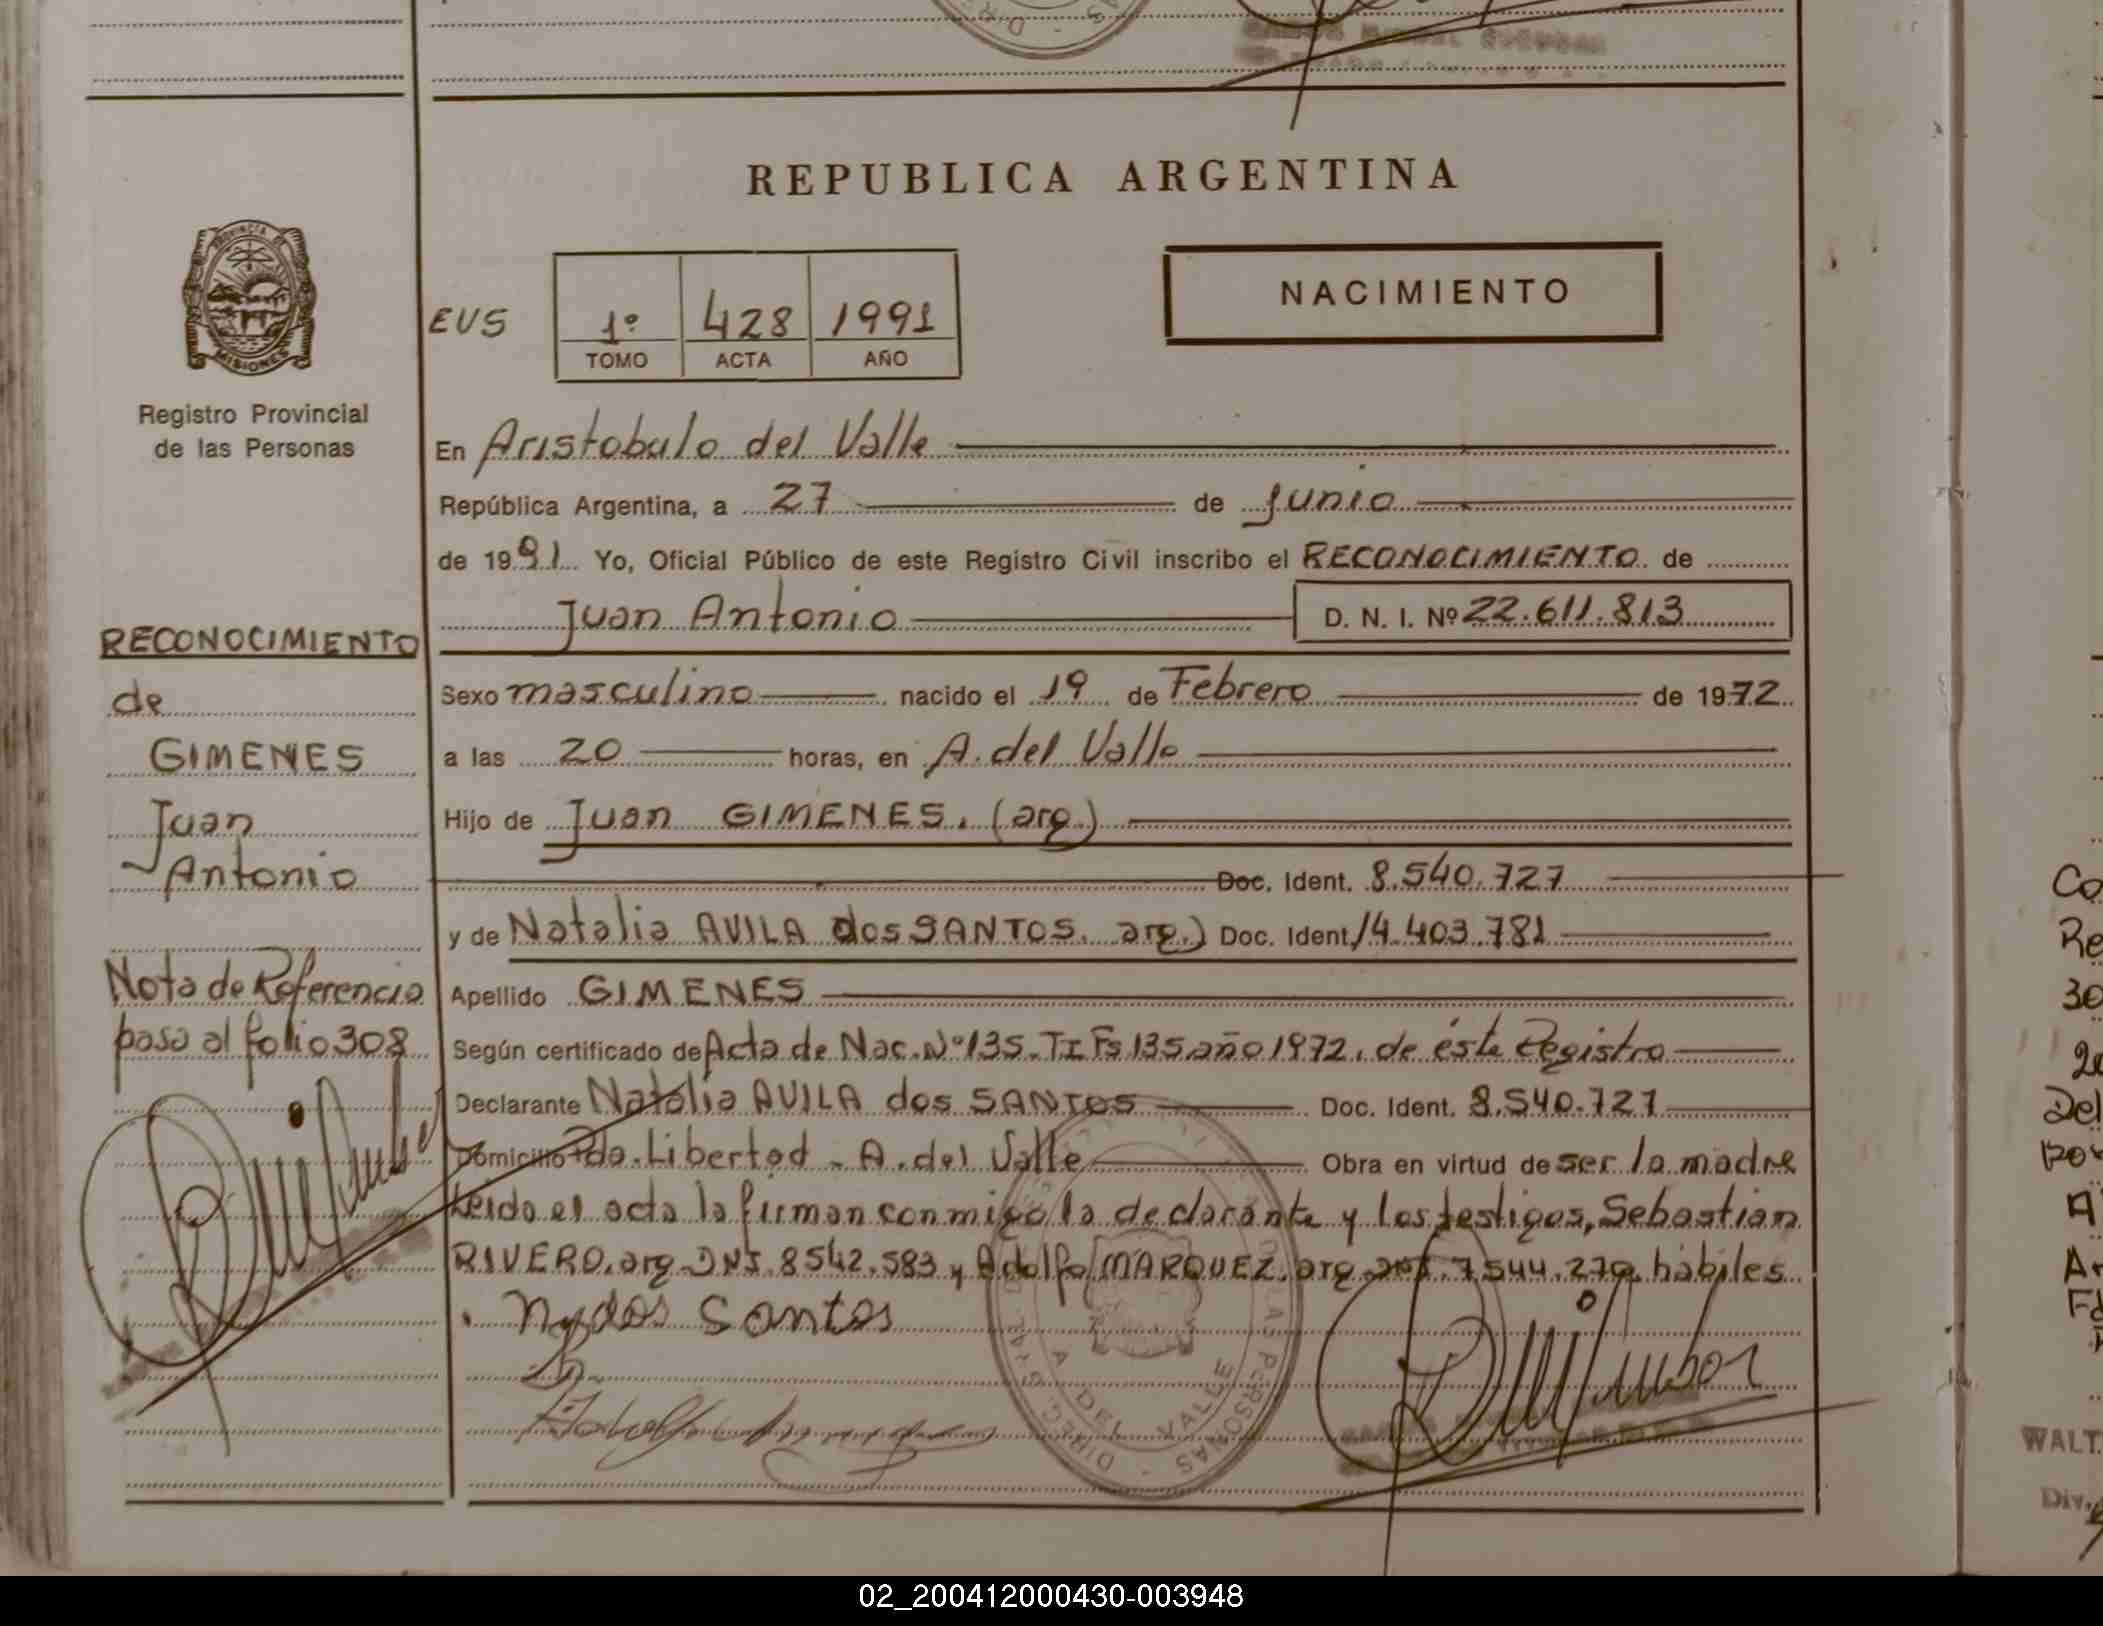 REPUBLICA ARGENTINA
PROVINCIA DE
MISIONES
Registro Provincial
de las Personas
EUS
1º 428 1991
TOMO ACTA AÑO
NACIMIENTO
En Aristobulo del Valle
República Argentina, a 27 de junio
de 1991 Yo, Oficial Público de este Registro Civil inscribo el RECONOCIMIENTO de
Juan Antonio D. N. I. Nº 22.611.813
Sexo masculino nacido el 19 de Febrero de 1972
a las 20 horas, en A. del Valle
Hijo de Juan GIMENES. (arg.)
Doc. Ident. 8.540.727
y de Natalia AVILA dos SANTOS. arg.) Doc. Ident. 14.403.781
Apellido GIMENES
Según certificado de Acta de Nac. Nº 135. TI Fs 135 año 1972. de éste Registro
Declarante Natalia AVILA dos SANTOS Doc. Ident. 8.540.727
Domicilio Pdo. Libertad - A. del Valle Obra en virtud de ser la madre
Leida el acta la firman conmigo la declarante y los testigos, Sebastian
RIVERO. arg. DNI. 8542.583 y Adolfo MARQUEZ. arg. DNI. 7544.279 habiles
N y dos Santos
DIREC PERSONAS
A DEL VALLE
RECONOCIMIENTO
de
GIMENES
Juan
Antonio
Nota de Referencia
pasa al folio 308
Co
Re
30
Del
por
A
Ar
WALT
Div.
02_200412000430-003948